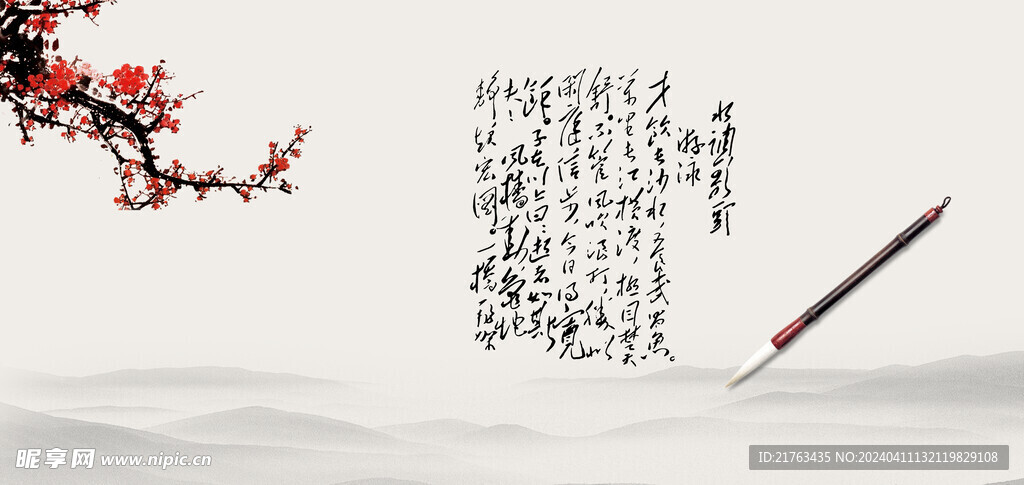 水調歌頭
游泳
才飲長沙水,又食武昌魚。
萬里長江橫渡,極目楚天
舒。不管風吹浪打,勝似
閒庭信步,今日得寬
餘。子在川上曰:逝者如斯
夫!風檣動,龜蛇
靜,起宏圖。一橋飛架
昵享网 www.nipic.cn
ID:21763435 NO:20240411132119829108